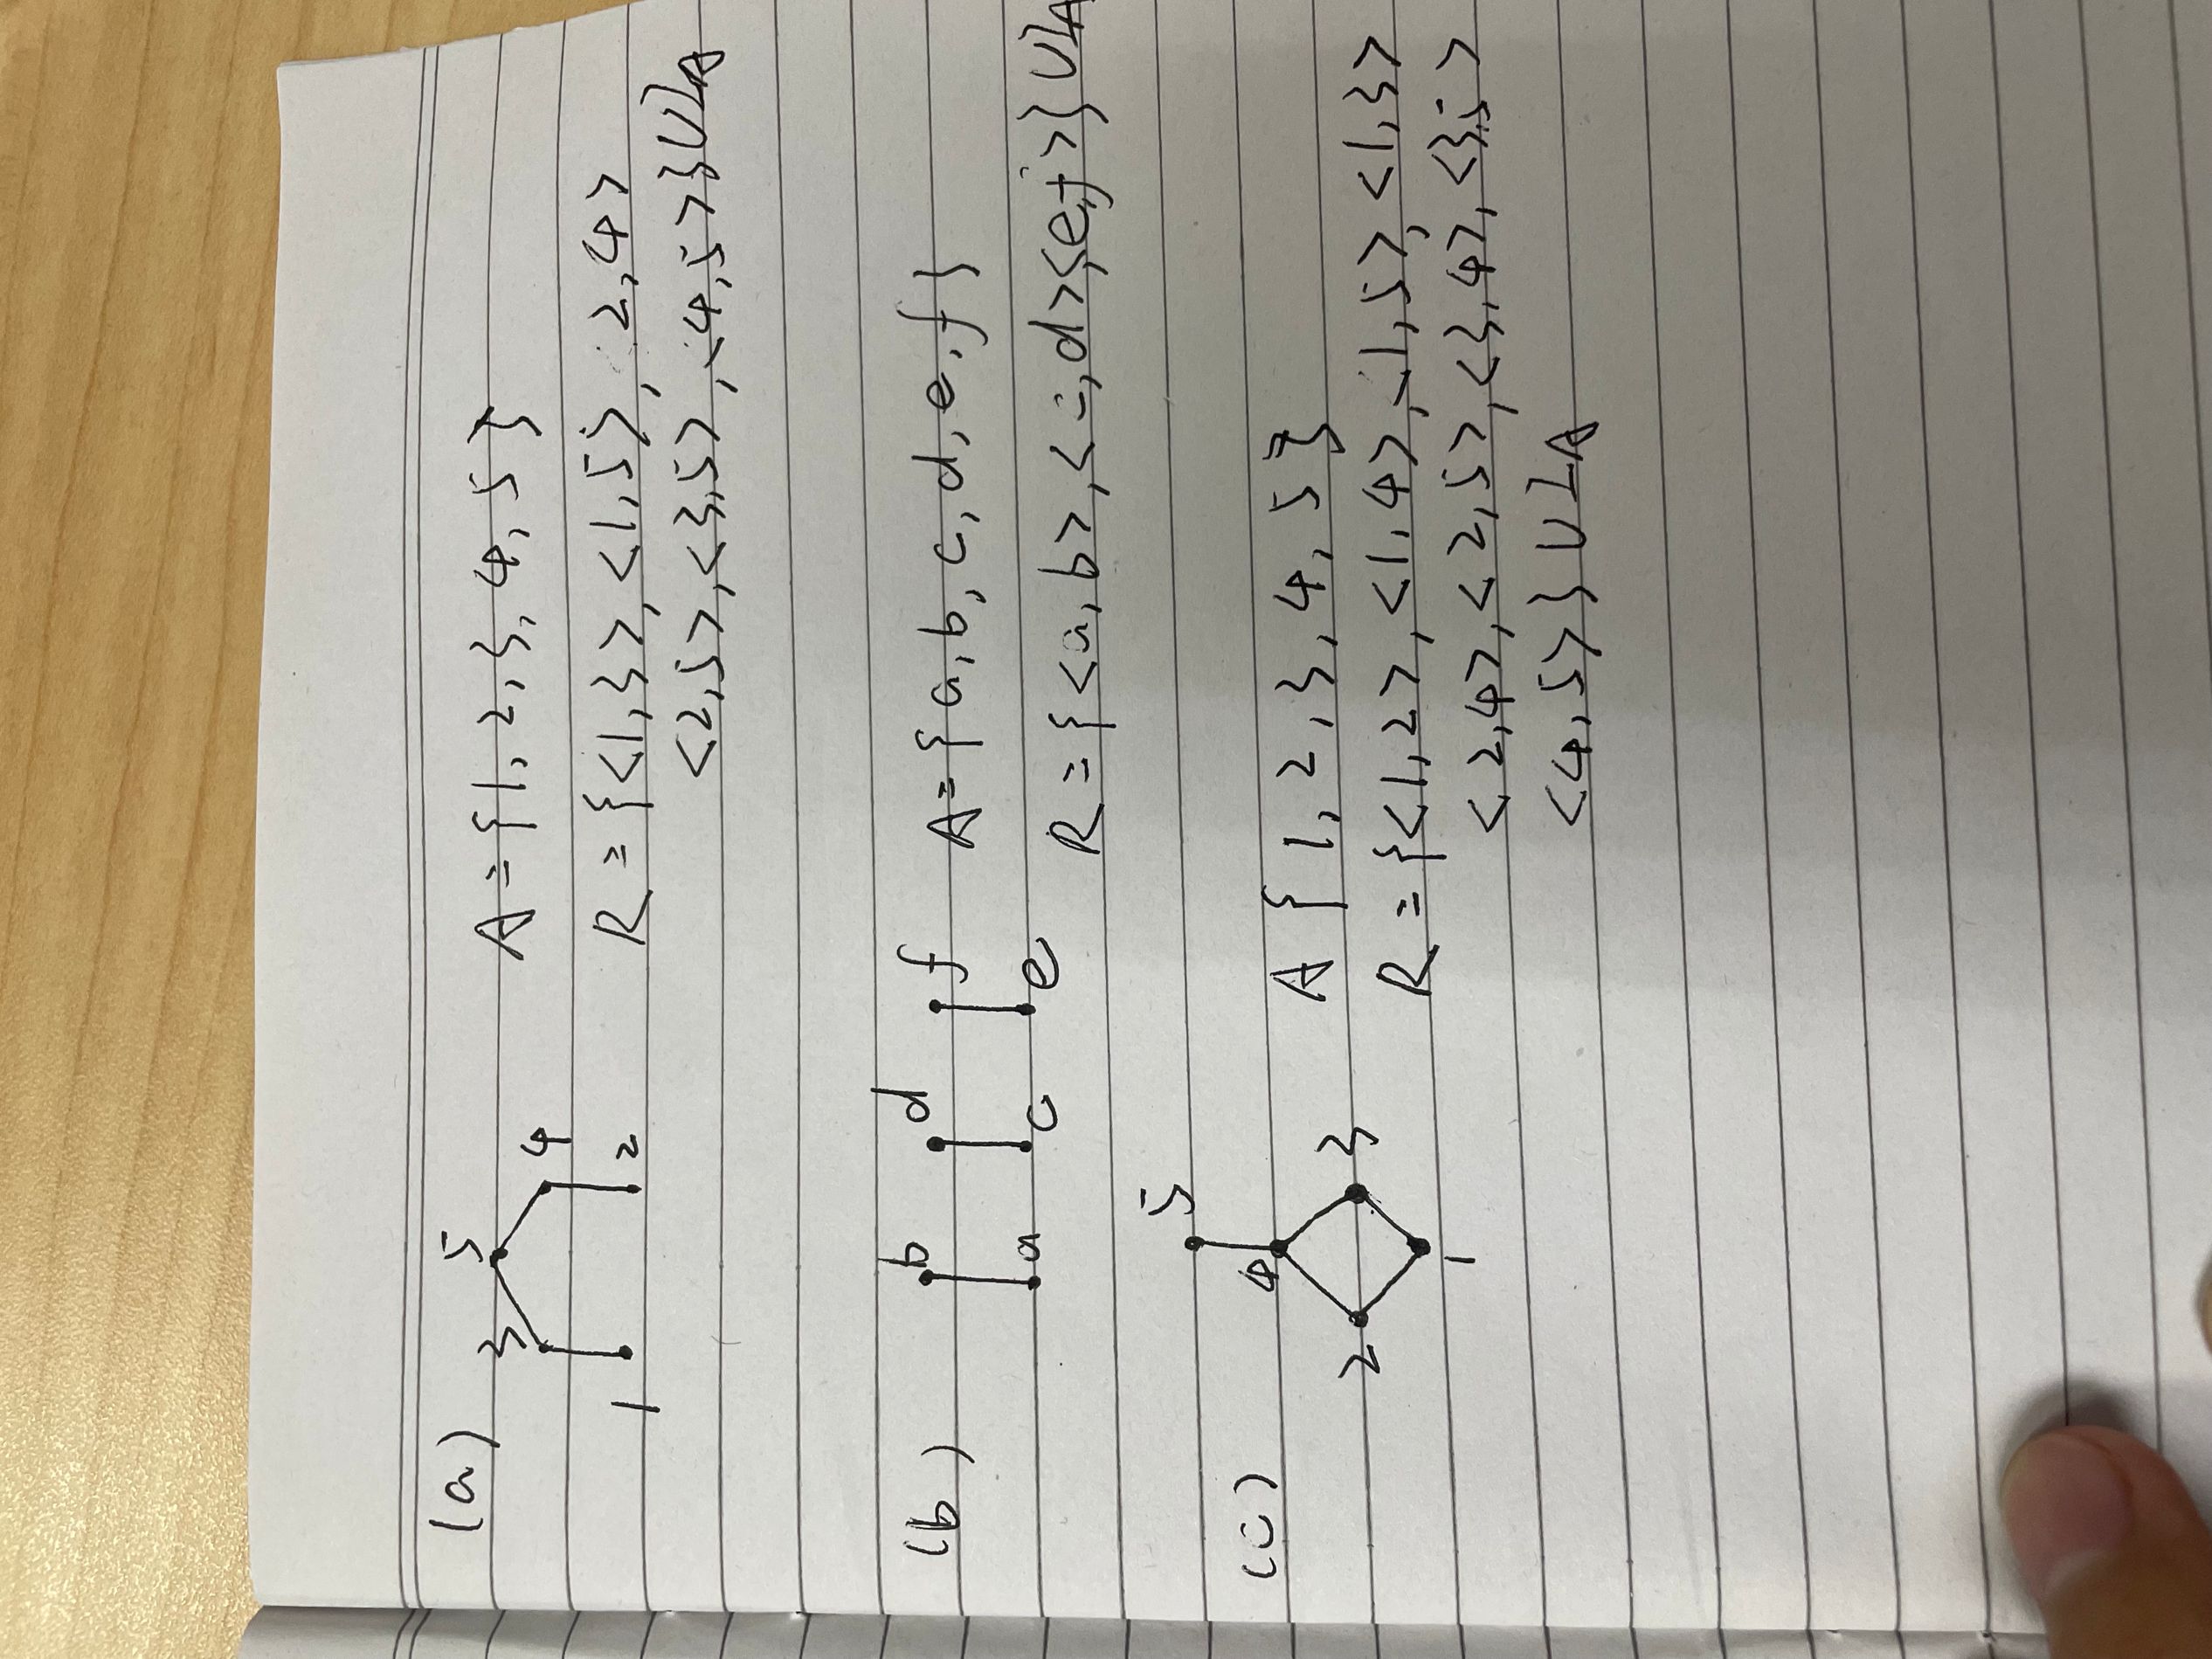 (a)
5
3
4
1
2
A = {1, 2, 3, 4, 5}
R = {<1,3>, <1,5>, 2,4>
<2,5>, <3,5>, <4,5>}UIA
(b)
b d f
a c e
A = {a, b, c, d, e, f}
R = {<a, b>, <c, d>,<e,f>}UIA
(c)
5
4
2 3
1
A {1, 2, 3, 4, 5}
R = {<1,2>, <1,4>, <1,5>, <1,3>
<2,4>, <2,5>, <3,4>, <3,5>
<4,5>}UIA